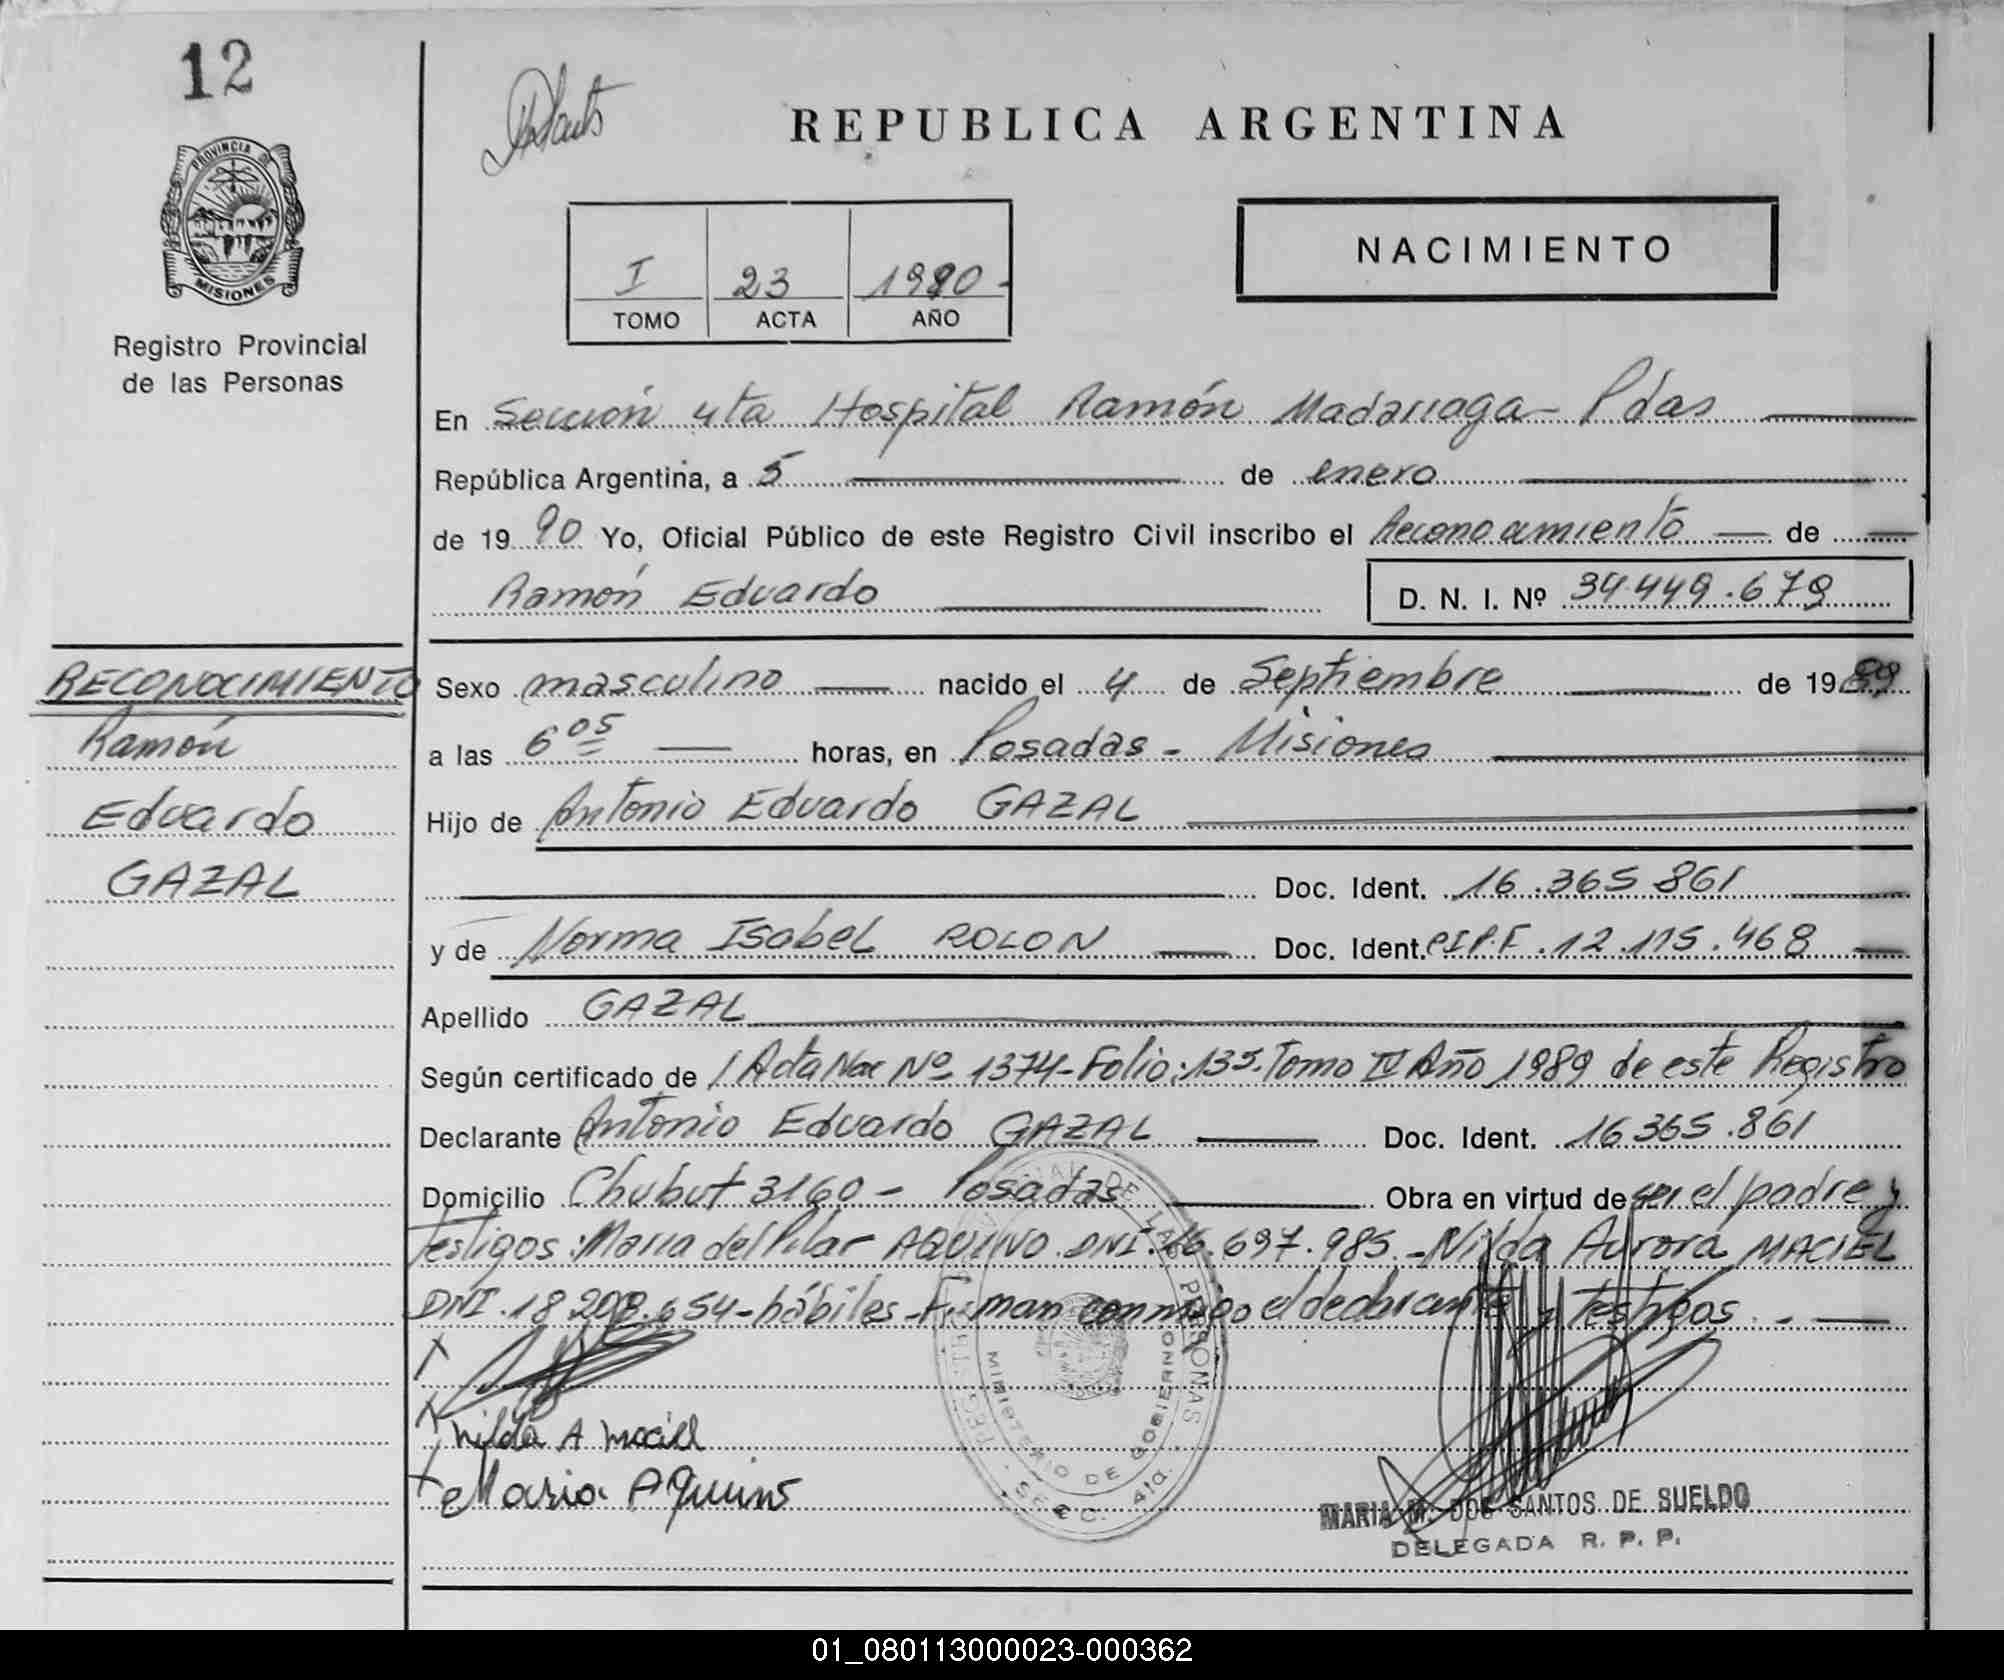 12
PROVINCIA DE
MISIONES
Registro Provincial
de las Personas
REPUBLICA ARGENTINA
NACIMIENTO
I 23 1990-
TOMO ACTA AÑO
En Sección 4ta Hospital Ramón Madariaga - Pdas
República Argentina, a 5 de enero
de 1990 Yo, Oficial Público de este Registro Civil inscribo el Reconocimiento de
Ramón Eduardo D. N. I. Nº 34.449.679
RECONOCIMIENTO
Ramón
Eduardo
GAZAL
Sexo masculino nacido el 4 de Septiembre de 1989
a las 6 05 horas, en Posadas - Misiones
Hijo de Antonio Eduardo GAZAL
Doc. Ident. 16.365 861
y de Norma Isabel ROLON Doc. Ident. CIP.F. 12.175.468
Apellido GAZAL
Según certificado de / Acta Nac Nº 1374- Folio: 135. Tomo IV Año 1989 de este Registro
Declarante Antonio Eduardo GAZAL Doc. Ident. 16365.861
Domicilio Chubut 3160 - Posadas Obra en virtud de ser el padre y
testigos: Maria del Pilar AQUINO DNI. 16.697.985. - Nilda Aurora MACIEL
DNI. 18 208.654 - hábiles - Firman conmigo el declarante y testigos. -
Nilda A Maciel
Maria Aquino
DE LAS PERSONAS
MINISTERIO DE GOBIERNO
SECC. 4ta.
MARIA M. DOS SANTOS DE SUELDO
DELEGADA R. P. P.
01_080113000023-000362